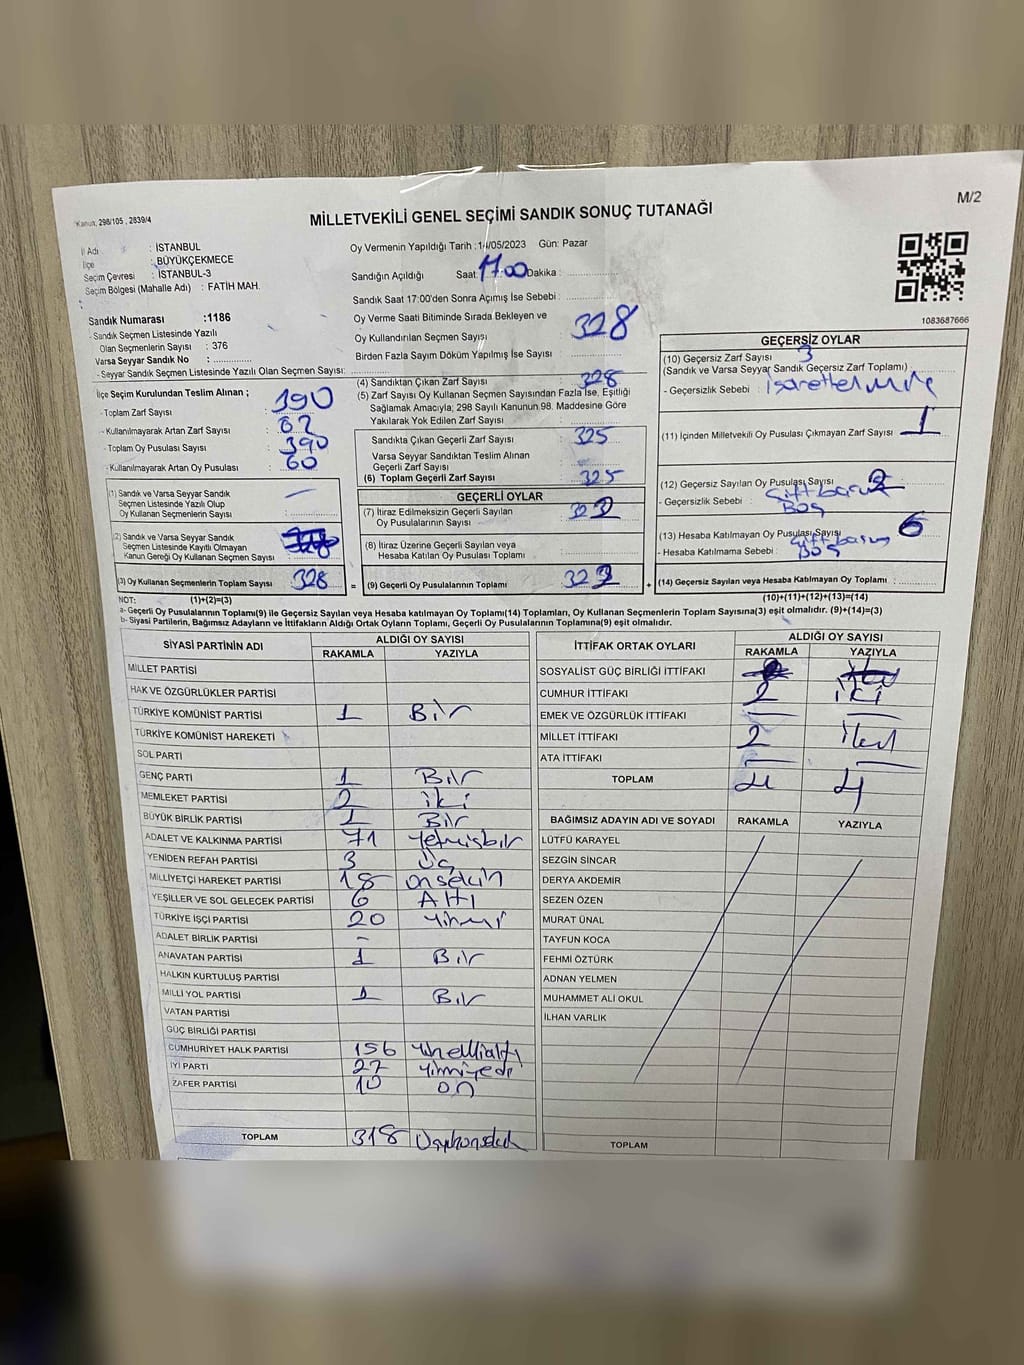 Kanun, 298/105 , 2839/4
MİLLETVEKİLİ GENEL SEÇİMİ SANDIK SONUÇ TUTANAĞI
M/2
İl Adı : İSTANBUL
İlçe : BÜYÜKÇEKMECE
Seçim Çevresi : İSTANBUL-3
Seçim Bölgesi (Mahalle Adı) : FATİH MAH.
Oy Vermenin Yapıldığı Tarih : 14/05/2023 Gün: Pazar
Sandığın Açıldığı Saat: 17:00 Dakika :
Sandık Saat 17:00'den Sonra Açımış İse Sebebi :
1083687666
Sandık Numarası :1186
- Sandık Seçmen Listesinde Yazılı
Olan Seçmenlerin Sayısı : 376
Varsa Seyyar Sandık No :
- Seyyar Sandık Seçmen Listesinde Yazılı Olan Seçmen Sayısı:
Oy Verme Saati Bitiminde Sırada Bekleyen ve
Oy Kullandırılan Seçmen Sayısı 328
Birden Fazla Sayım Döküm Yapılmış İse Sayısı :
İlçe Seçim Kurulundan Teslim Alınan ;
- Toplam Zarf Sayısı : 390
- Kullanılmayarak Artan Zarf Sayısı : 62
- Toplam Oy Pusulası Sayısı : 390
- Kullanılmayarak Artan Oy Pusulası : 60
(1) Sandık ve Varsa Seyyar Sandık
Seçmen Listesinde Yazılı Olup
Oy Kullanan Seçmenlerin Sayısı :
(2) Sandık ve Varsa Seyyar Sandık
Seçmen Listesinde Kayıtlı Olmayan
Kanun Gereği Oy Kullanan Seçmen Sayısı :
(3) Oy Kullanan Seçmenlerin Toplam Sayısı 328
(4) Sandıktan Çıkan Zarf Sayısı 328
(5) Zarf Sayısı Oy Kullanan Seçmen Sayısından Fazla İse, Eşitliği
Sağlamak Amacıyla; 298 Sayılı Kanunun 98. Maddesine Göre
Yakılarak Yok Edilen Zarf Sayısı :
Sandıkta Çıkan Geçerli Zarf Sayısı : 325
Varsa Seyyar Sandıktan Teslim Alınan
Geçerli Zarf Sayısı :
(6) Toplam Geçerli Zarf Sayısı : 325
GEÇERLİ OYLAR
(7) İtiraz Edilmeksizin Geçerli Sayılan
Oy Pusulalarının Sayısı : 322
(8) İtiraz Üzerine Geçerli Sayılan veya
Hesaba Katılan Oy Pusulası Toplamı :
= (9) Geçerli Oy Pusulalarının Toplamı : 322 +
GEÇERSİZ OYLAR
(10) Geçersiz Zarf Sayısı 3
(Sandık ve Varsa Seyyar Sandık Geçersiz Zarf Toplamı)
- Geçersizlik Sebebi :
(11) İçinden Milletvekili Oy Pusulası Çıkmayan Zarf Sayısı 1
(12) Geçersiz Sayılan Oy Pusulası Sayısı
- Geçersizlik Sebebi : Çift basım
Boş
(13) Hesaba Katılmayan Oy Pusulası Sayısı 6
- Hesaba Katılmama Sebebi : Çift basım
Boş
(14) Geçersiz Sayılan veya Hesaba Katılmayan Oy Toplamı :
NOT: (1)+(2)=(3) (10)+(11)+(12)+(13)=(14)
a- Geçerli Oy Pusulalarının Toplamı(9) ile Geçersiz Sayılan veya Hesaba katılmayan Oy Toplamı(14) Toplamları, Oy Kullanan Seçmenlerin Toplam Sayısına(3) eşit olmalıdır. (9)+(14)=(3)
b- Siyasi Partilerin, Bağımsız Adayların ve İttifakların Aldığı Ortak Oyların Toplamı, Geçerli Oy Pusulalarının Toplamına(9) eşit olmalıdır.
SİYASİ PARTİNİN ADI ALDIĞI OY SAYISI
RAKAMLA YAZIYLA
MİLLET PARTİSİ
HAK VE ÖZGÜRLÜKLER PARTİSİ
TÜRKİYE KOMÜNİST PARTİSİ 1 Bir
TÜRKİYE KOMÜNİST HAREKETİ
SOL PARTİ
GENÇ PARTİ 1 Bir
MEMLEKET PARTİSİ 2 iki
BÜYÜK BİRLİK PARTİSİ 1 Bir
ADALET VE KALKINMA PARTİSİ 71 yetmişbir
YENİDEN REFAH PARTİSİ 3 Üç
MİLLİYETÇİ HAREKET PARTİSİ 18 onsekin
YEŞİLLER VE SOL GELECEK PARTİSİ 6 Altı
TÜRKİYE İŞÇİ PARTİSİ 20 yirmi
ADALET BİRLİK PARTİSİ -
ANAVATAN PARTİSİ 1 Bir
HALKIN KURTULUŞ PARTİSİ
MİLLİ YOL PARTİSİ 1 Bir
VATAN PARTİSİ
GÜÇ BİRLİĞİ PARTİSİ
CUMHURİYET HALK PARTİSİ 156 yüzellialtı
İYİ PARTİ 27 yirmiyedi
ZAFER PARTİSİ 10 on
TOPLAM 318
İTTİFAK ORTAK OYLARI ALDIĞI OY SAYISI
RAKAMLA YAZIYLA
SOSYALİST GÜÇ BİRLİĞİ İTTİFAKI
CUMHUR İTTİFAKI 2 iki
EMEK VE ÖZGÜRLÜK İTTİFAKI
MİLLET İTTİFAKI 2
ATA İTTİFAKI
TOPLAM 4 4
BAĞIMSIZ ADAYIN ADI VE SOYADI RAKAMLA YAZIYLA
LÜTFÜ KARAYEL
SEZGİN SİNCAR
DERYA AKDEMİR
SEZEN ÖZEN
MURAT ÜNAL
TAYFUN KOCA
FEHMİ ÖZTÜRK
ADNAN YELMEN
MUHAMMET ALİ OKUL
İLHAN VARLIK
TOPLAM